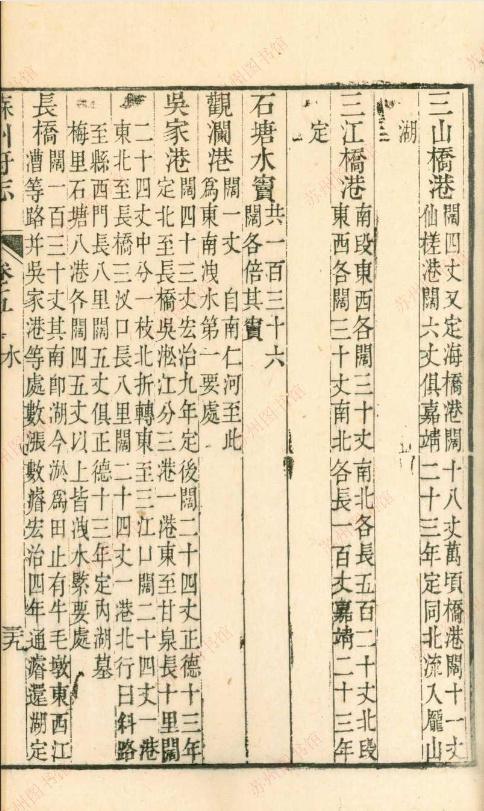 三山橋港闊四丈又定海橋港闊十八丈萬頃橋港闊十一丈
仙槎港闊六丈俱嘉靖二十三年定同北流入龐山
湖
三江橋港南段東西各闊三十丈南北各長五百二十丈北段
東西各闊三十丈南北各長一百丈嘉靖二十三年
定
石塘水竇共一百三十六
闊各倍其竇
觀瀾港闊一丈 自南仁河至此
爲東南洩水第一要處
吳家港闊四十三丈宏治九年定後闊二十四丈正德十三年
定北至長橋吳淞江分三港一港東至甘泉長十里闊
二十四丈中分一枝北折轉東至三江口闊二十四丈一港
東北至長橋三汊口長八里闊二十四丈一港北行日斜路
至縣西門長八里闊五丈俱正德十三年定內湖墓
梅里石塘八港各闊四五丈以上皆洩水緊要處
長橋闊一百三十丈其南卽湖今淤爲田止有牛毛墩東西江
漕等路并吳家港等處數漲數濬宏治四年通濬還湖定
蘇州府志 卷之五 水 三九
蘇州图书馆